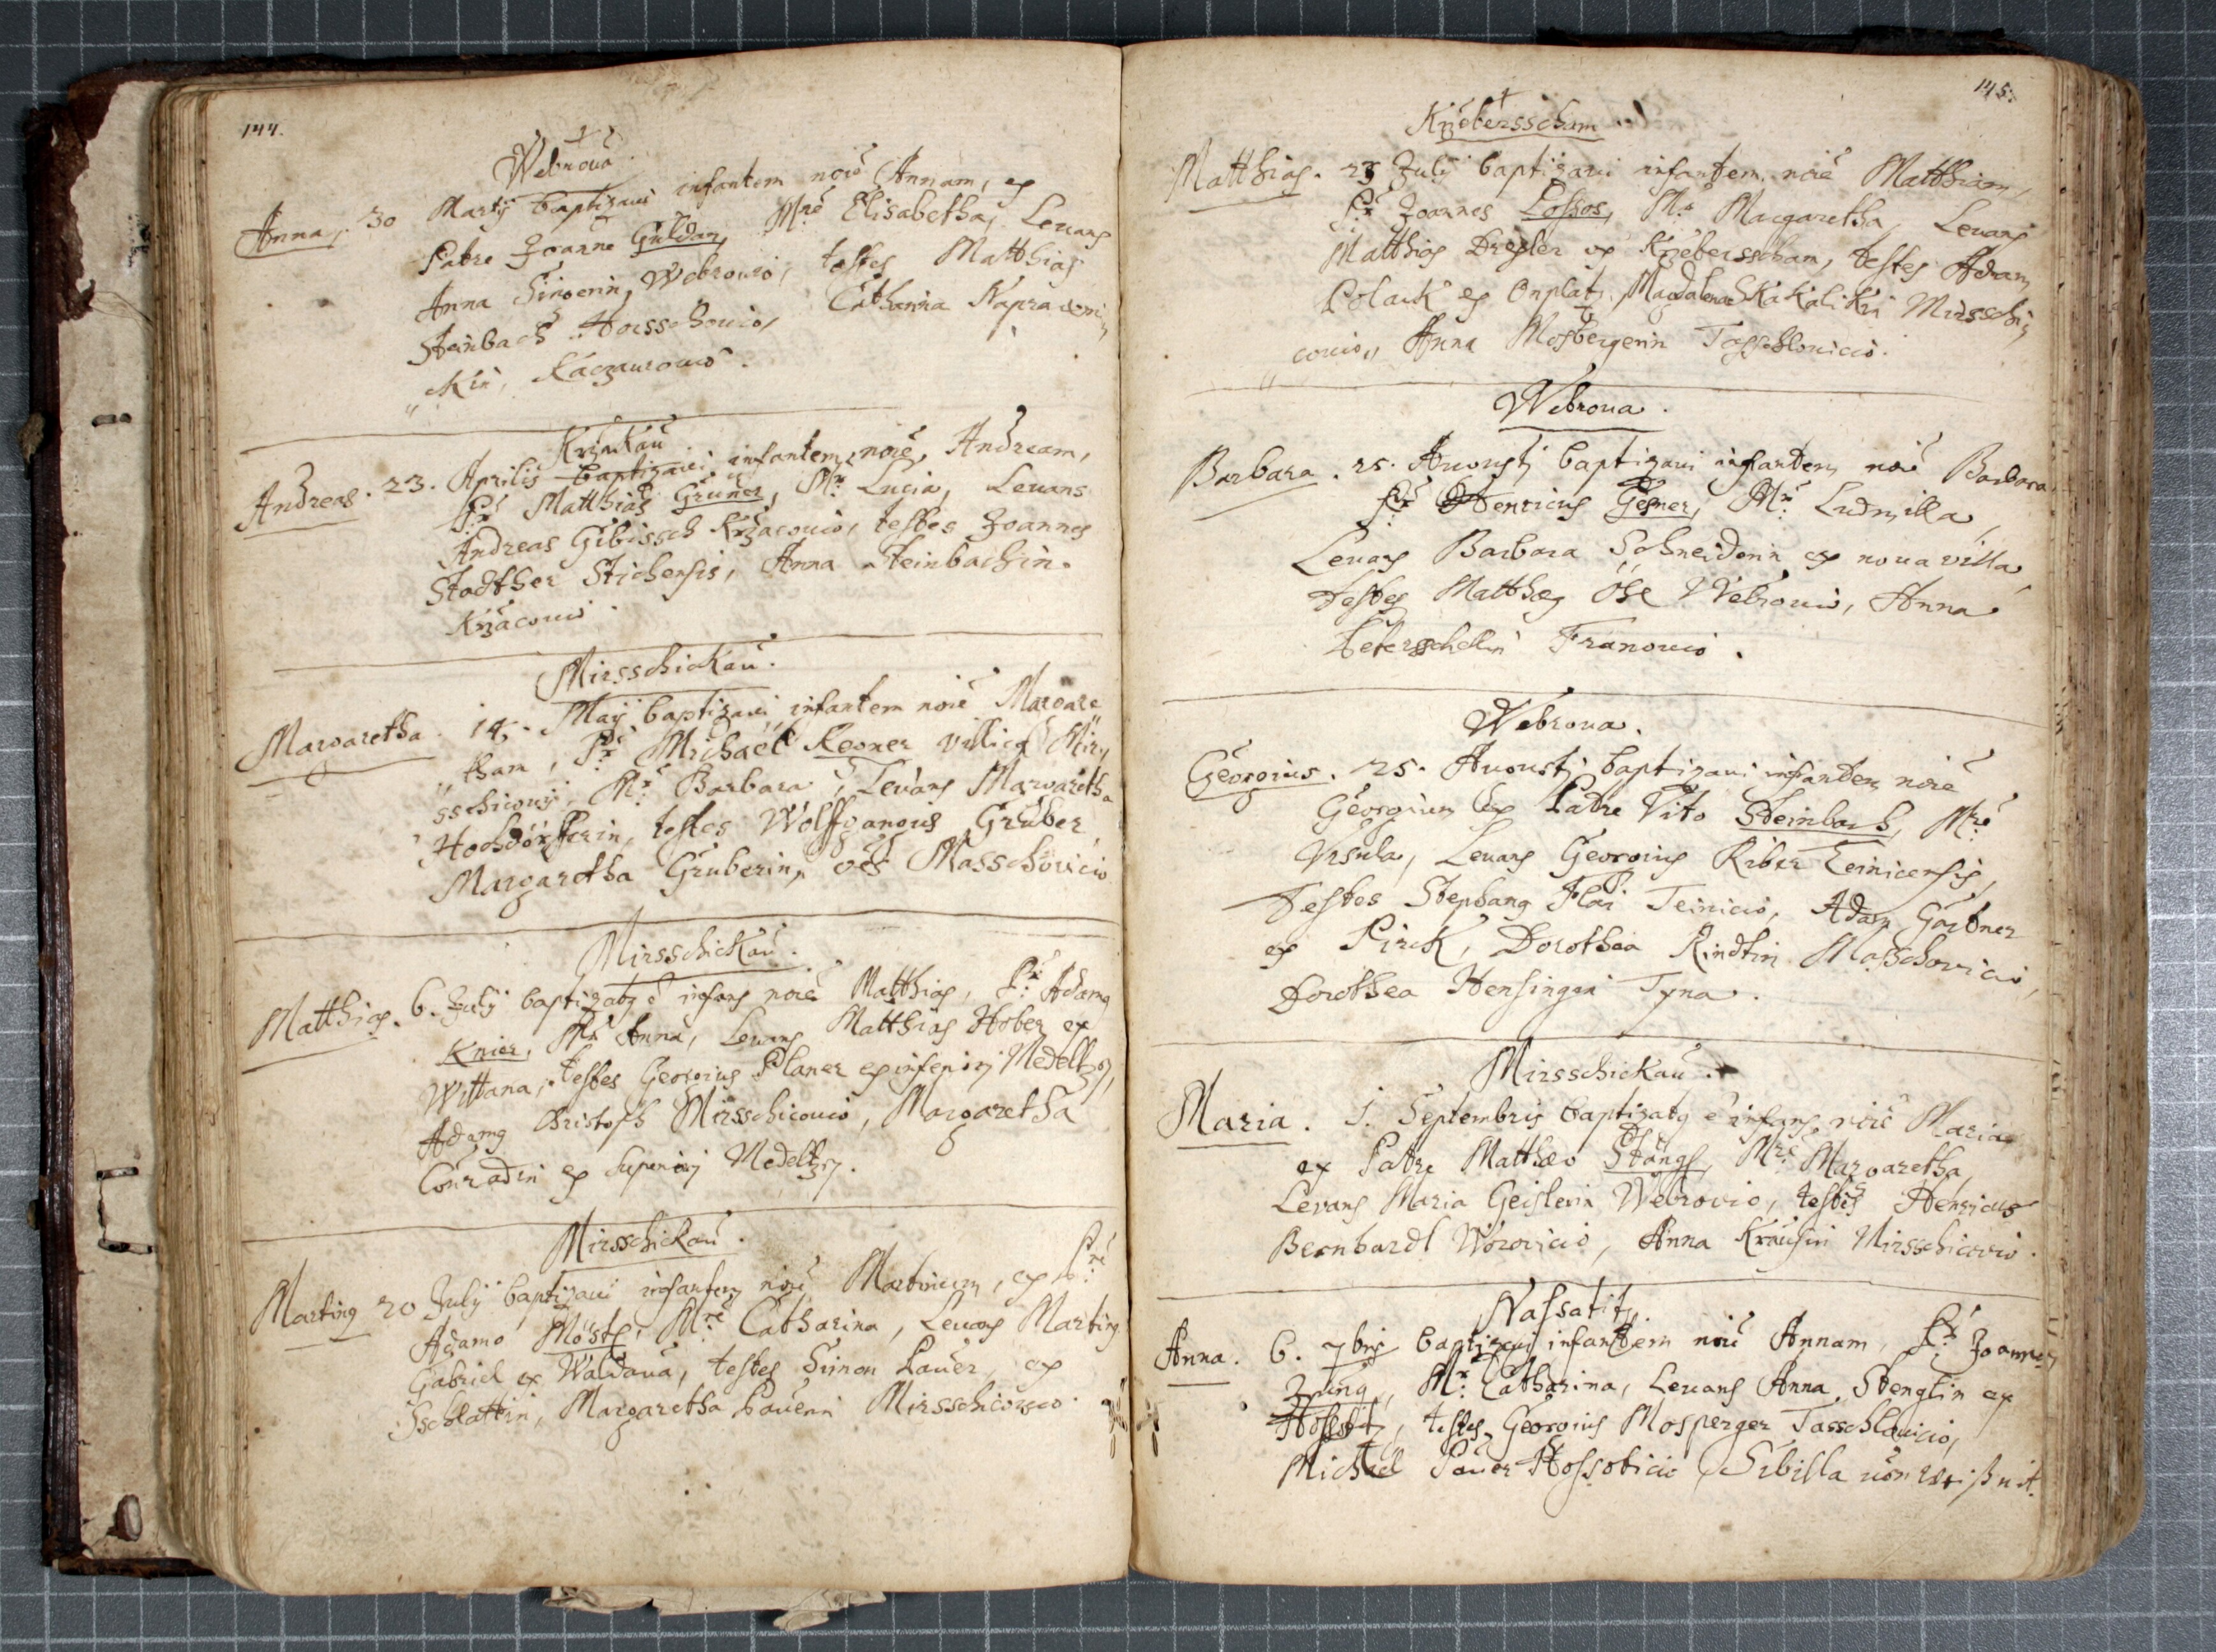 144.
Webrowa.
Anna. 30 Martij baptizavi infantem noie Annam, ex
Patre Joanne Guldan, Mre Elisabetha, Levans
Anna Singerin Webrowio, testes Matthias
Steinbach Horsschowio, Catharina Napravdni„
„ckin, Raczaurowio.
Krzakau
Andreas. 23. Aprilis baptizavi infantem, noie, Andream,
Pr Matthias Gruner, Mr Lucia, Levans
Andreas Gibissch Krzacowio, testes Joannes
Stadther Stichensis, Anna Steinbachin
Krzacowio.
Mirsschickau.
Margaretha. 14. Maij baptizavi infantem noie Margare
„tham, Pr Michael Regner villicus Mir„
sschicowij, Mr Barbara, Levans Margaretha
Hochdörfferin, testes Wolffgangus Gruber,
Margaretha Gruberin, oes Masschovicio
Mirsschickau.
Matthias. 6. Julij baptizatq e infans noie Matthias, Pr Adamq
Knier, Mr Anna, Levans Matthias Hober ex
Wittana, testes Georgius Planer ex inferiori Medeltzen,
Adamq Christoph Mirsschicowio, Margaretha
Conradin ex superiori Medeltzen.
Mirsschickau.
Martinq 20 Julij baptizavi infantem noie Martinum, ex Pre
Adamo Möstl, Mre Catharina, Levans Martinq
Gabriel ex Waldaua, testes Simon Pauer, ex
Sschlattin, Margaretha Pauerin Mirsschicowio.
145.
Krzebersscham
Matthias. 23 Julij baptizavi infantem, noie Matthiam,
Pr Joannes Lossos, Mr Margaretha, Levans
Matthias Drexler ex Krzebersscham, testes Adam
Polack ex Onplatz, Magdalena Kakalikin Mirsschi„
cowio, Anna Mosbergerin Tasschlovicio.
Webrowa.
Barbara. 25. Augusti baptizavi infantem noie Barbara
Pr Henricus Gesner, Mr Ludmilla,
Levans Barbara Schneiderin ex nova villa,
testes Matthæq Öhl Webrowio, Anna
Peterschellin Franowio.
Webrowa.
Georgius. 25. Augusti baptizavi infantem noie
Georgium ex Patre Vito Steinbach, Mre
Ursula, Levans Georgius Riber Teinicensis,
Testes Stephanq Flai Teinicio, Adam Gartner
ex Pirck, Dorothea Rindtin Masschovicio,
Dorothea Hensingin Tyna.
Mirsschickau.
Maria. 1. Septembris baptizatq e infans noie Maria
ex Patre Matthæo Stangl, Mre Margaretha,
Levans Maria Geislerin Webrovio, testes Henricus
Bernhardl Worovicio, Anna Krausin Mirsschicovio.
Nassatitz.
Anna. 6. 7bris baptizavi infantem noie Annam, Pr Joannes
Jung, Mr Catharina, Levans Anna Stenglin ex
Hossotitz, testes Georgius Mosperger Tasschlavicio,
Michael Pauer Hossoticio, Sibilla